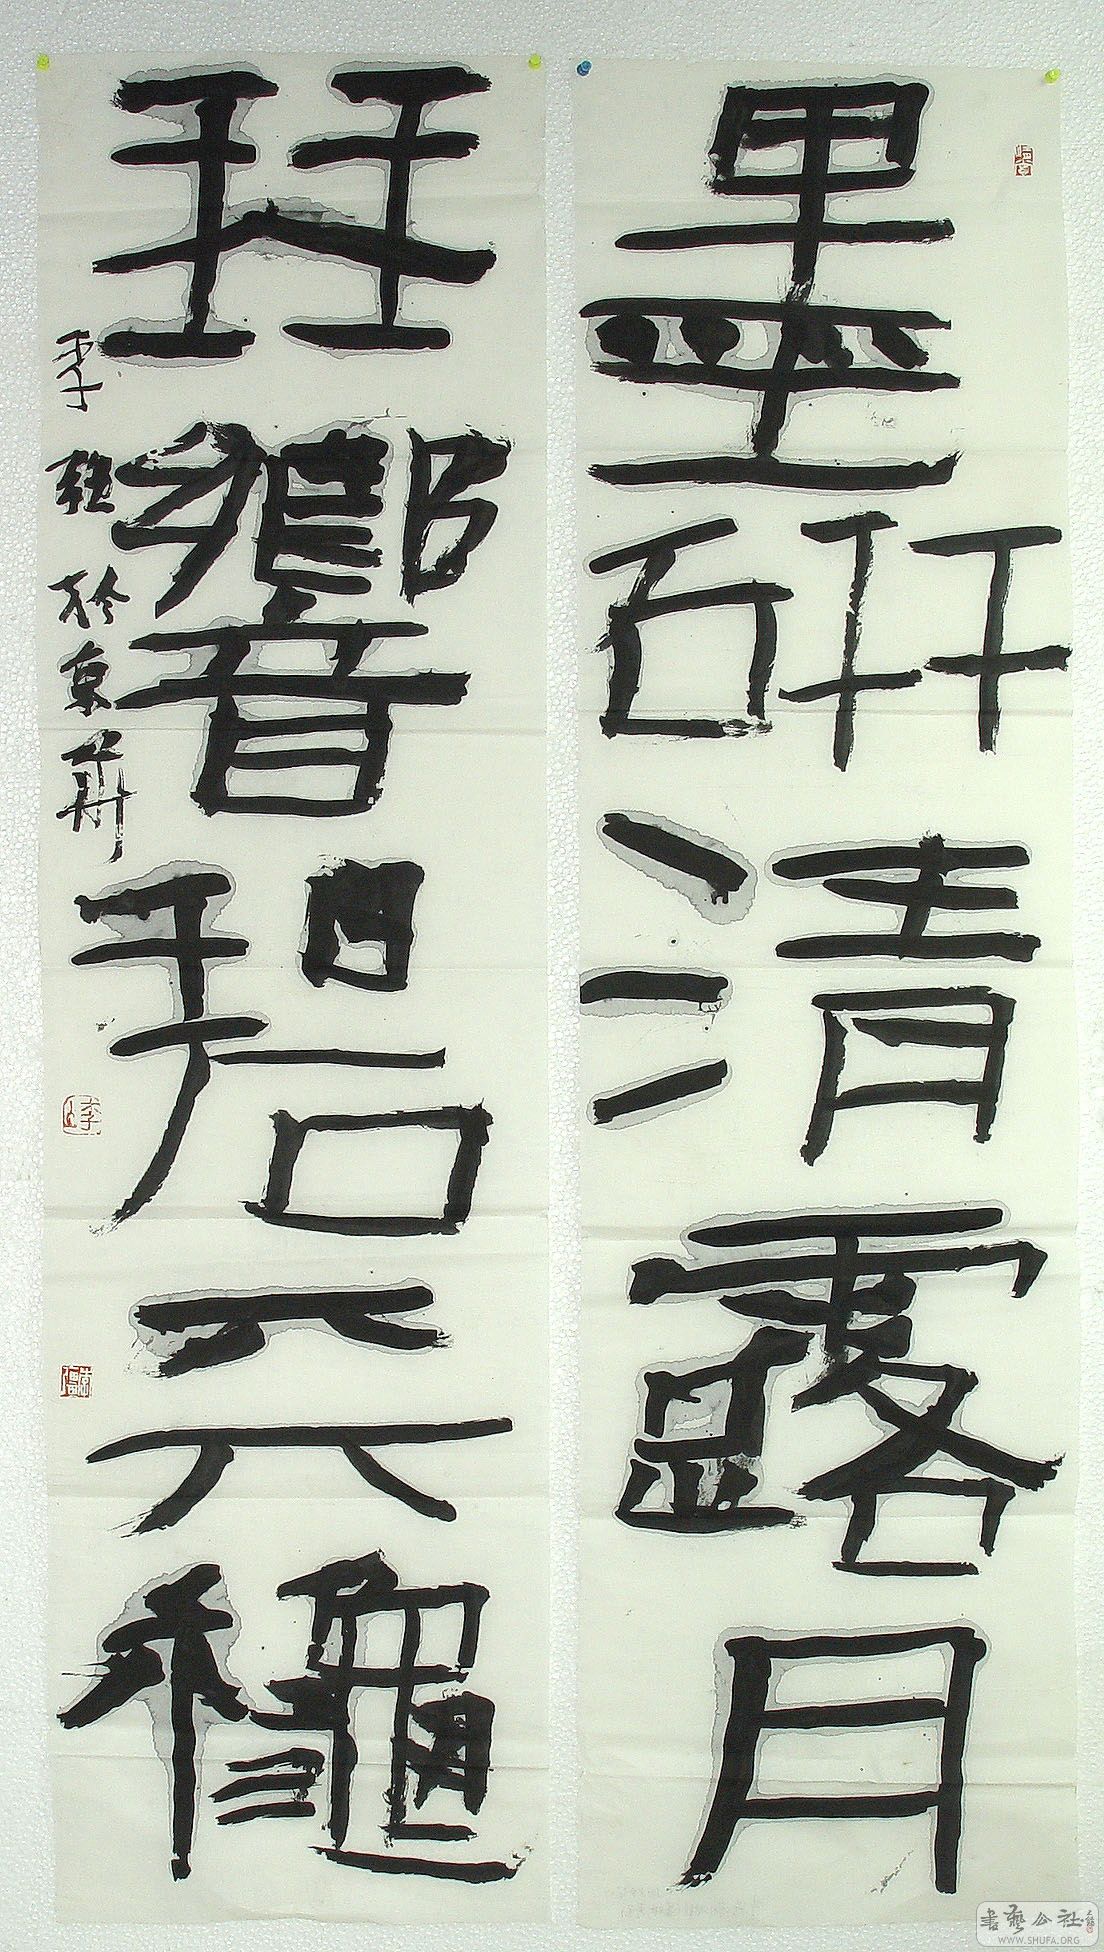 墨硏清露月
琴響碧天龝
李強於京華
書藝公社
WWW.SHUFA.ORG